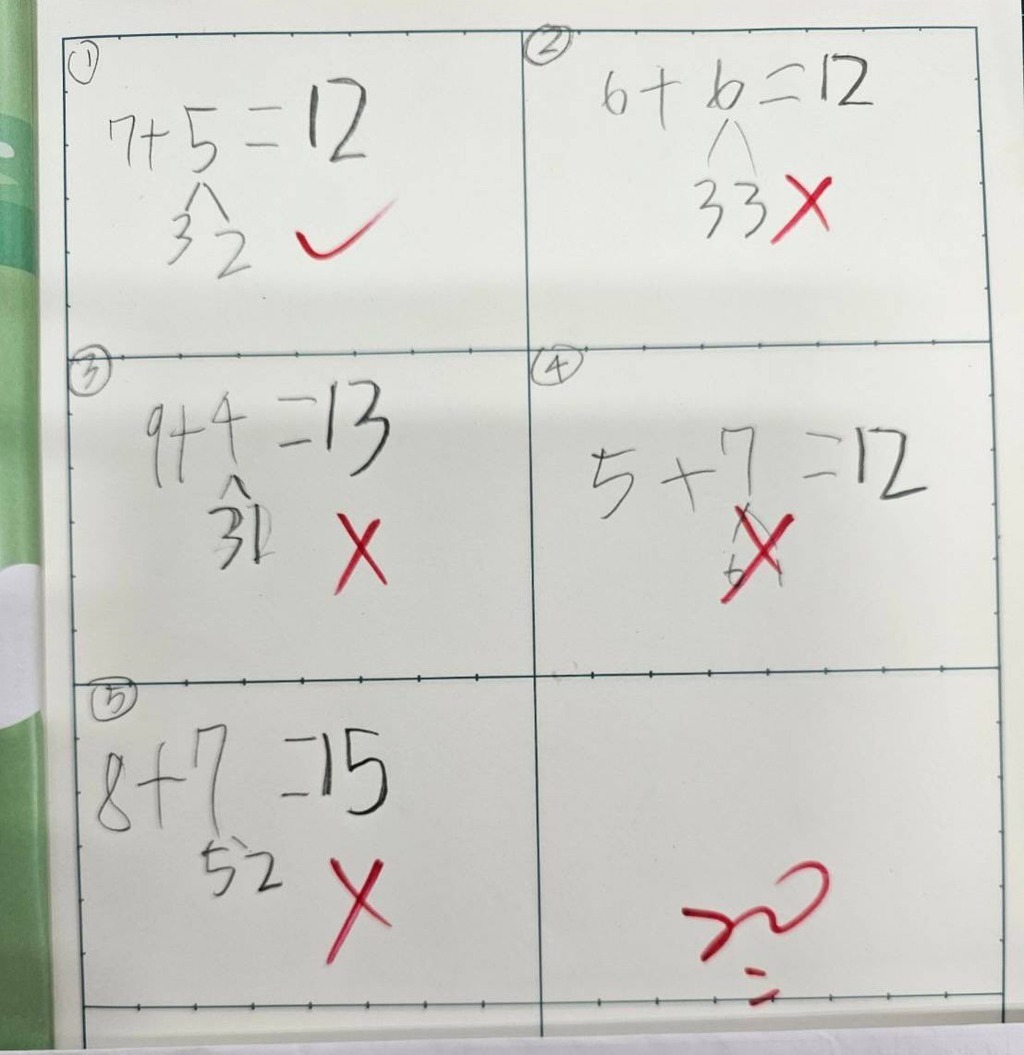 ①
7+5=12
3 2
②
6+6=12
3 3
③
9+4=13
3 1
④
5+7=12
6 1
⑤
8+7=15
5 2
20